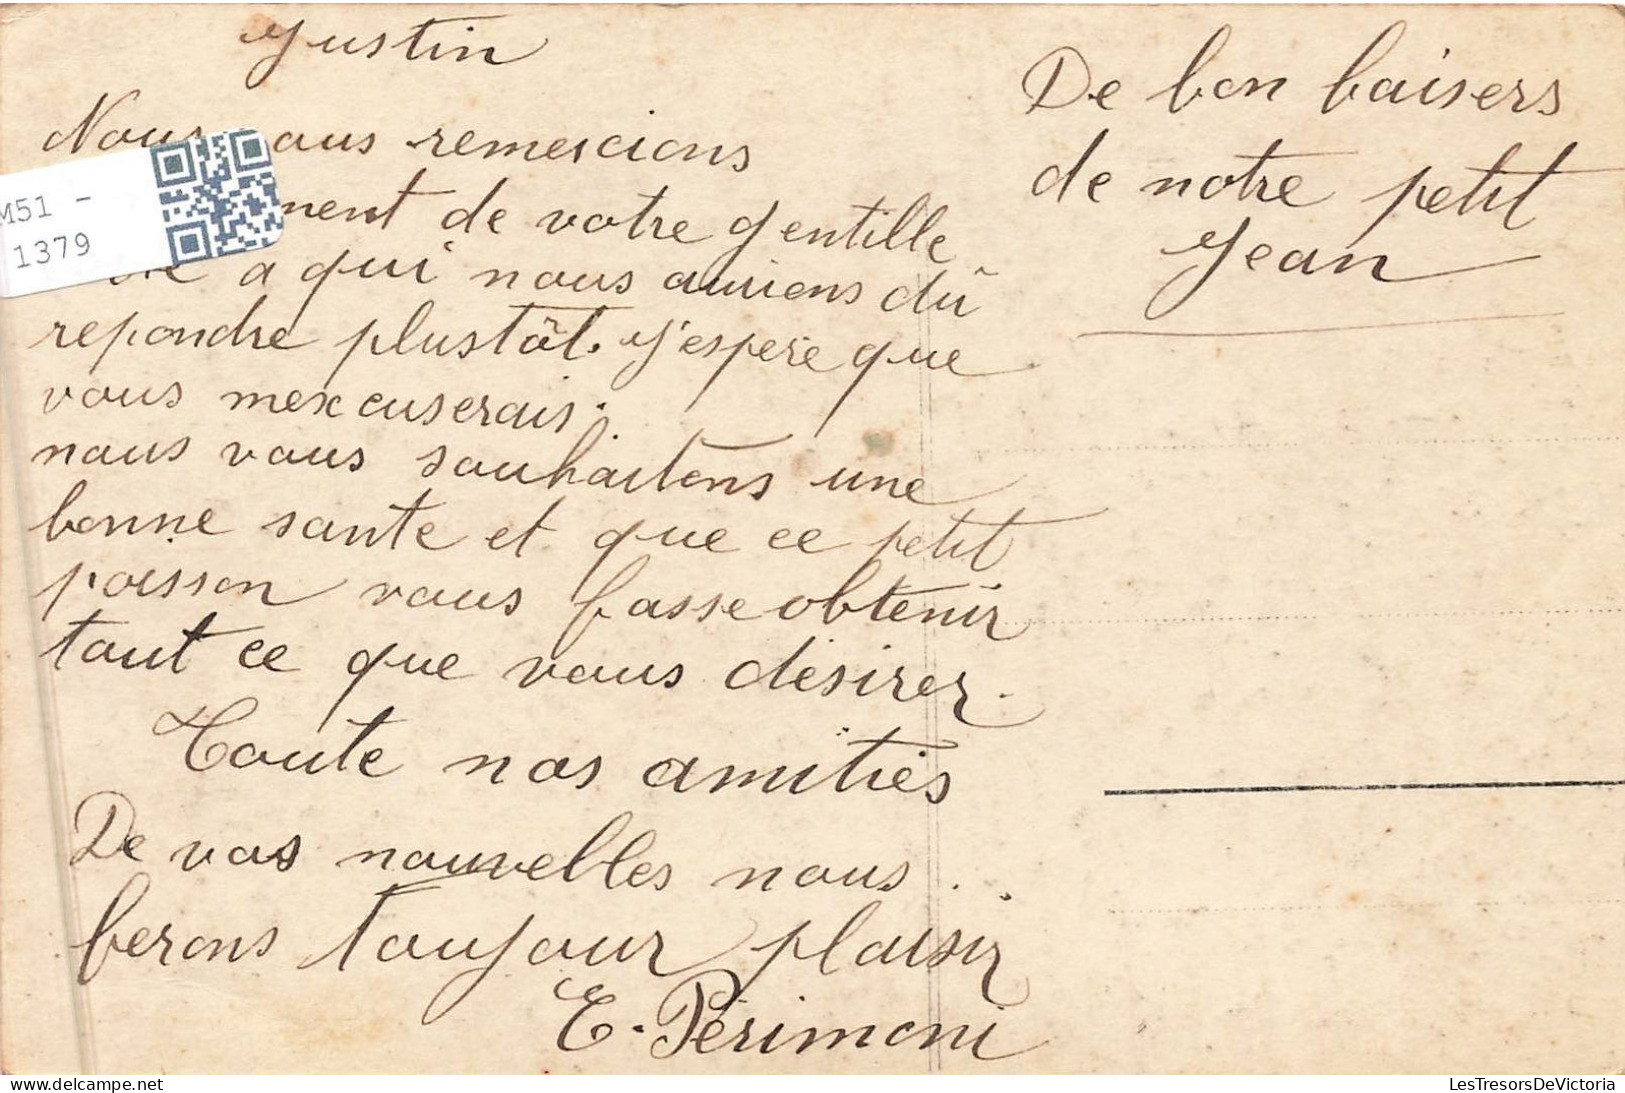 Justin
Nous vous remercions
M51 -
1379
ment de votre gentille
a qui nous auriens dû
repondre plustôt. J'espère que
vous mexcuserais.
nous vous souhaitons une
bonne sante et que ce petit
poisson vous fasse obtenir
tout ce que vous désirer.
Toute nos amitiés
De vos nouvelles nous
ferons toujour plaisir
E. Périmoni
De bon baisers
de notre petit
Jean
LesTresorsDeVictoria
picclick.be